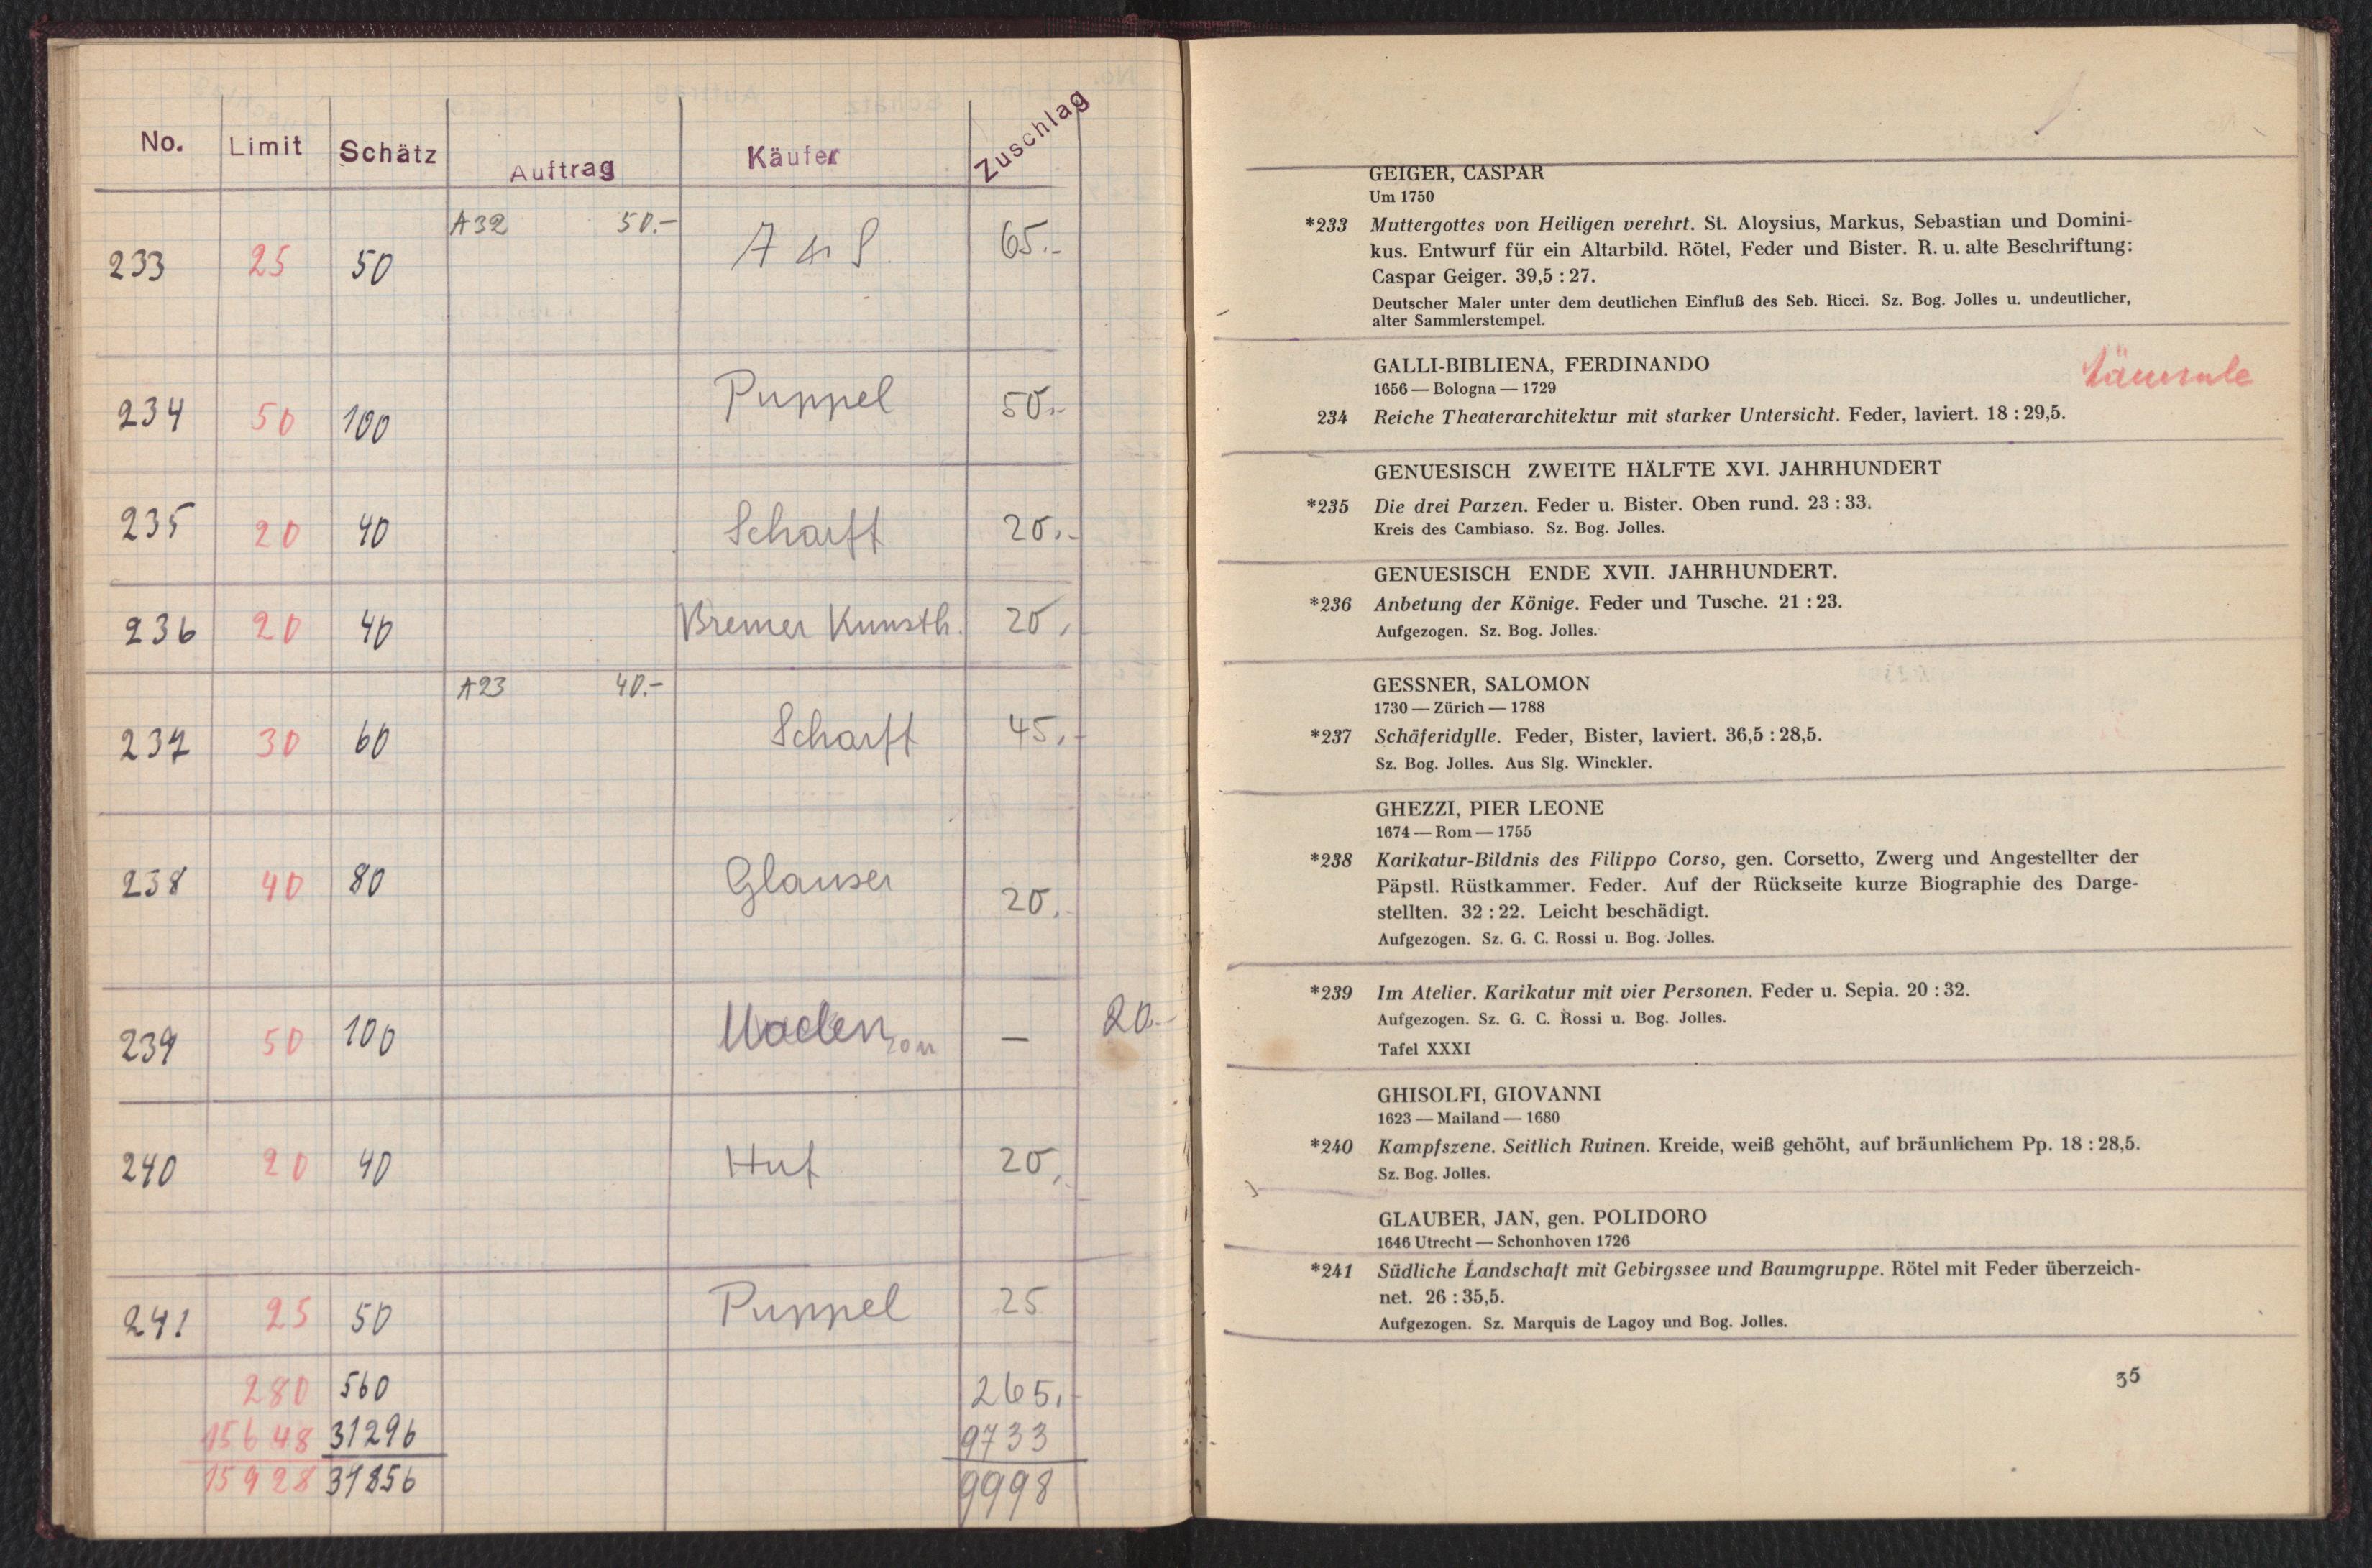 No. Limit Schätz Auftrag Käufer Zuschlag
A32 50.-
233 25 50 65.-
234 50 100 Puppel 50.-
235 20 40 Scharff 20.-
236 20 40 Bremer Kunsth. 20,-
A23 40.-
237 30 60 Scharff 45,-
238 40 80 Glauser 20,-
239 50 100 — 20.-
240 20 40 Huf 20,-
241 25 50 Puppel 25
280 560 265,-
15648 31296 9733
15928 31856 9998
GEIGER, CASPAR
Um 1750
*233 Muttergottes von Heiligen verehrt. St. Aloysius, Markus, Sebastian und Domini-
kus. Entwurf für ein Altarbild. Rötel, Feder und Bister. R. u. alte Beschriftung:
Caspar Geiger. 39,5 : 27.
Deutscher Maler unter dem deutlichen Einfluß des Seb. Ricci. Sz. Bog. Jolles u. undeutlicher,
alter Sammlerstempel.
GALLI-BIBLIENA, FERDINANDO
1656 — Bologna — 1729
234 Reiche Theaterarchitektur mit starker Untersicht. Feder, laviert. 18 : 29,5.
GENUESISCH ZWEITE HÄLFTE XVI. JAHRHUNDERT
*235 Die drei Parzen. Feder u. Bister. Oben rund. 23 : 33.
Kreis des Cambiaso. Sz. Bog. Jolles.
GENUESISCH ENDE XVII. JAHRHUNDERT.
*236 Anbetung der Könige. Feder und Tusche. 21 : 23.
Aufgezogen. Sz. Bog. Jolles.
GESSNER, SALOMON
1730 — Zürich — 1788
*237 Schäferidylle. Feder, Bister, laviert. 36,5 : 28,5.
Sz. Bog. Jolles. Aus Slg. Winckler.
GHEZZI, PIER LEONE
1674 — Rom — 1755
*238 Karikatur-Bildnis des Filippo Corso, gen. Corsetto, Zwerg und Angestellter der
Päpstl. Rüstkammer. Feder. Auf der Rückseite kurze Biographie des Darge-
stellten. 32 : 22. Leicht beschädigt.
Aufgezogen. Sz. G. C. Rossi u. Bog. Jolles.
*239 Im Atelier. Karikatur mit vier Personen. Feder u. Sepia. 20 : 32.
Aufgezogen. Sz. G. C. Rossi u. Bog. Jolles.
Tafel XXXI
GHISOLFI, GIOVANNI
1623 — Mailand — 1680
*240 Kampfszene. Seitlich Ruinen. Kreide, weiß gehöht, auf bräunlichem Pp. 18 : 28,5.
Sz. Bog. Jolles.
GLAUBER, JAN, gen. POLIDORO
1646 Utrecht — Schonhoven 1726
*241 Südliche Landschaft mit Gebirgssee und Baumgruppe. Rötel mit Feder überzeich-
net. 26 : 35,5.
Aufgezogen. Sz. Marquis de Lagoy und Bog. Jolles.
35